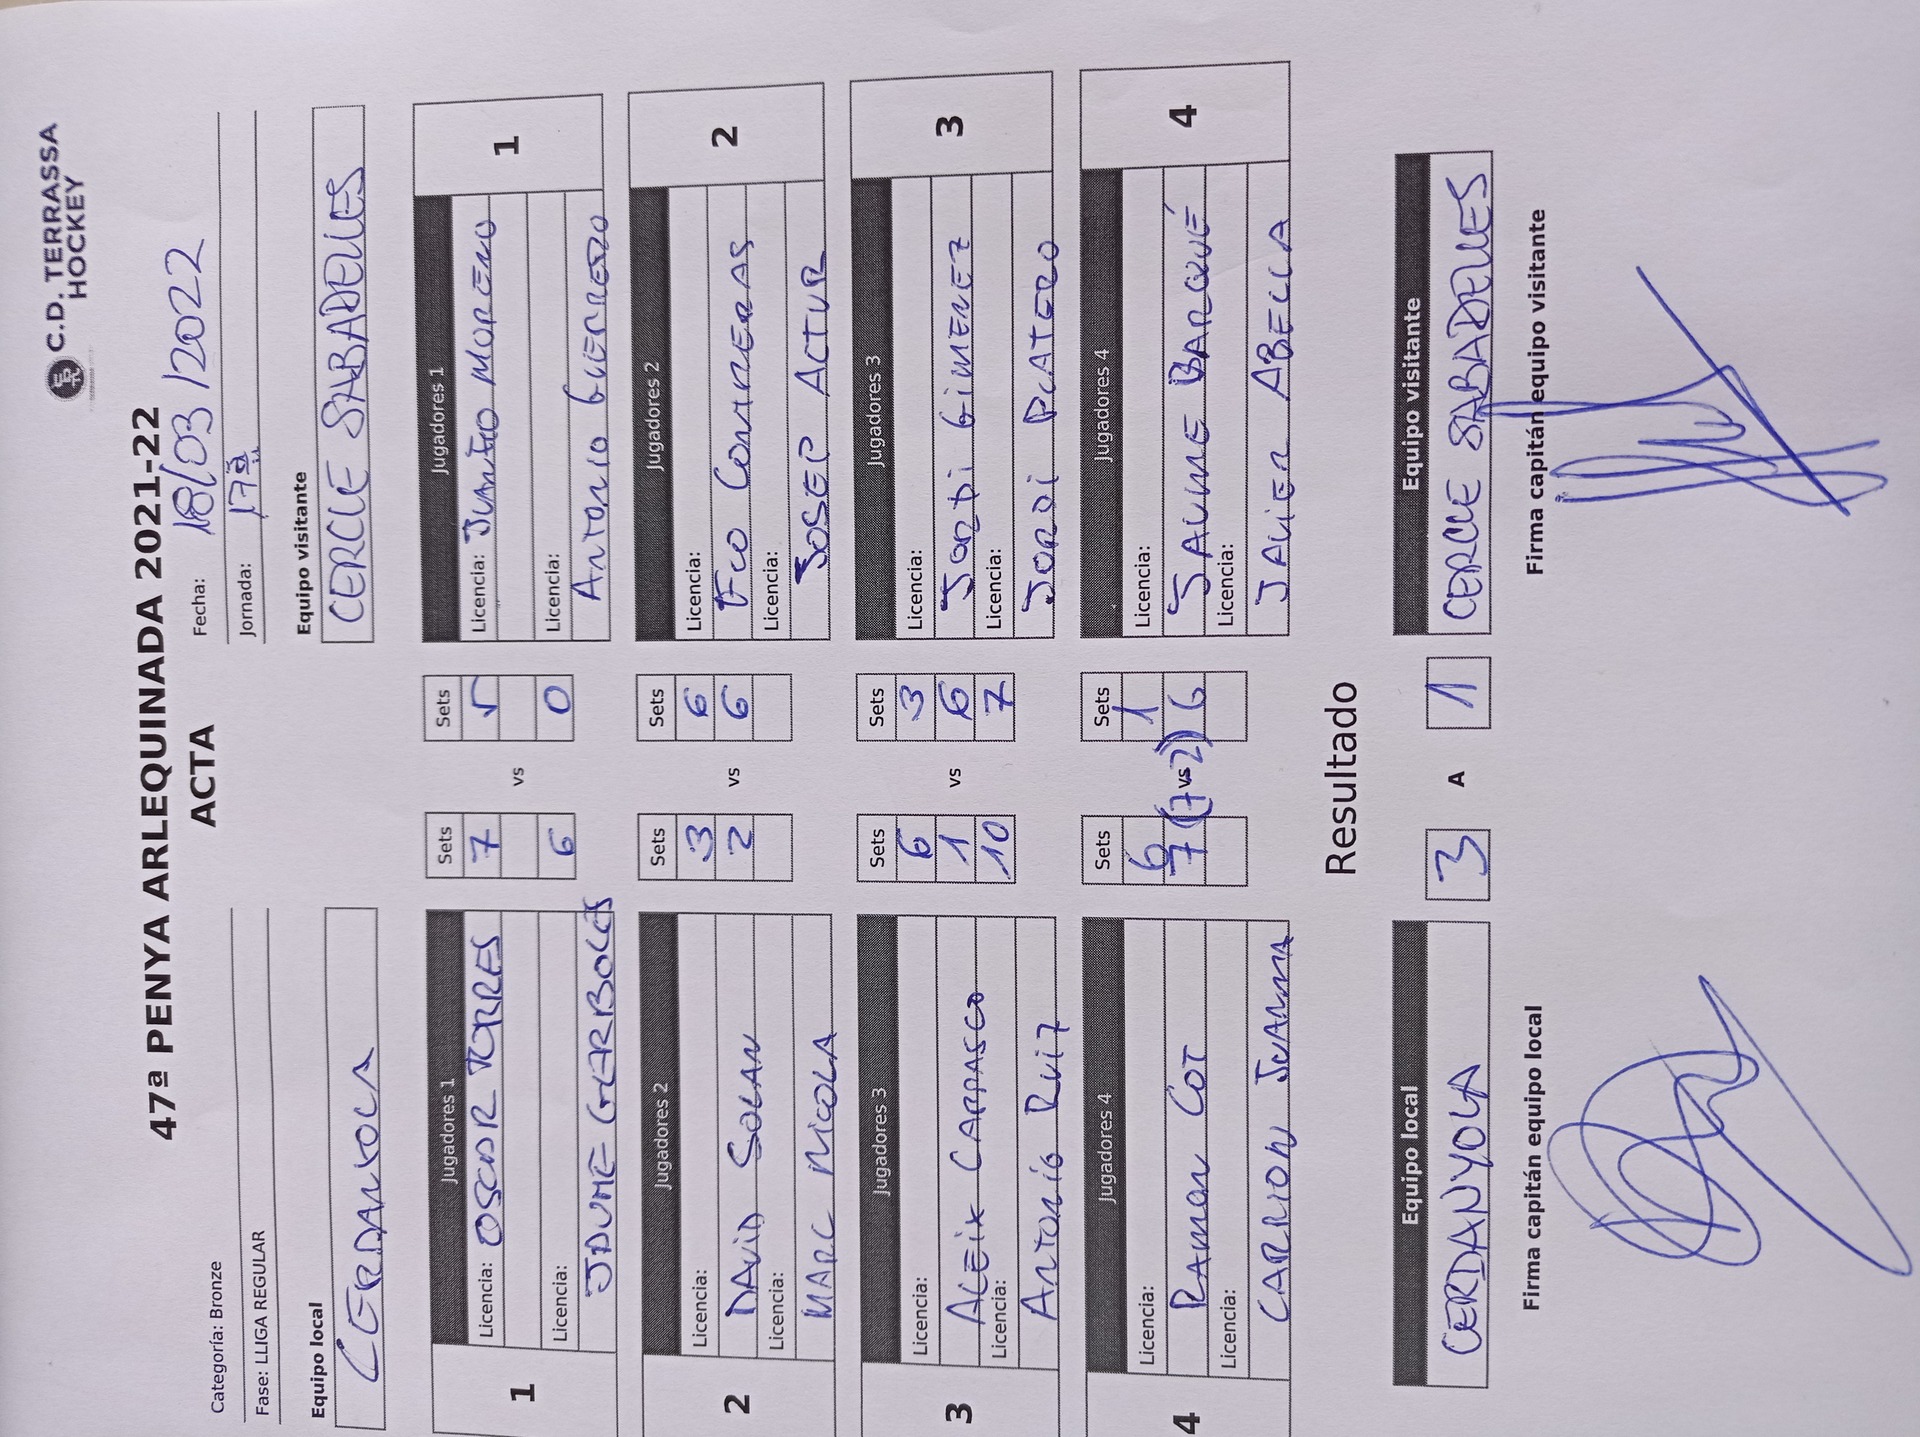 C.D. TERRASSA
HOCKEY
47ª PENYA ARLEQUINADA 2021-22
ACTA
Categoría: Bronze
Fecha: 18/03/2022
Fase: LLIGA REGULAR
Jornada: 17ª
Equipo local
Equipo visitante
CERDANYOLA
CERCLE SABADELLES
1
Jugadores 1
Sets
Sets
Jugadores 1
1
Licencia: OSCAR TORRES
7
vs
5
Licencia: JUANTO MORENO
Licencia:
6
0
Licencia:
JAUME GARBOLES
ANTONIO GUERRERO
2
Jugadores 2
Sets
Sets
Jugadores 2
2
Licencia:
3
vs
6
Licencia:
DAVID SOLAN
2
6
FCO CONTRERAS
Licencia:
Licencia:
MARC NICOLA
JOSEP ACTUR
3
Jugadores 3
Sets
Sets
Jugadores 3
3
Licencia:
6
vs
3
Licencia:
ALEIX CARRASCO
1
6
JORDI GIMENEZ
Licencia:
10
7
Licencia:
ANTONIO RUIZ
JORDI PLATERO
4
Jugadores 4
Sets
Sets
Jugadores 4
4
Licencia:
6
vs
1
Licencia:
RAMON COT
7 (7-2) 6
JAUME BARQUÉ
Licencia:
Licencia:
CARRION JUANMA
JAVIER ABELLA
Resultado
Equipo local
Equipo visitante
CERDANYOLA
3
A
1
CERCLE SABADELLES
Firma capitán equipo local
Firma capitán equipo visitante